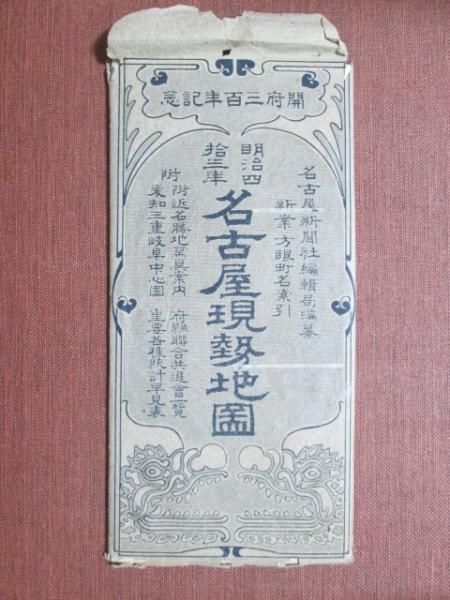 開府三百年記念
名古屋新聞社編輯局編纂
新案方眼町名索引
明治四
拾三年
名古屋現勢地圖
附
附近名勝地案内
府縣聯合共進會一覧
愛知三重岐阜中心圖
重要各種統計早見表